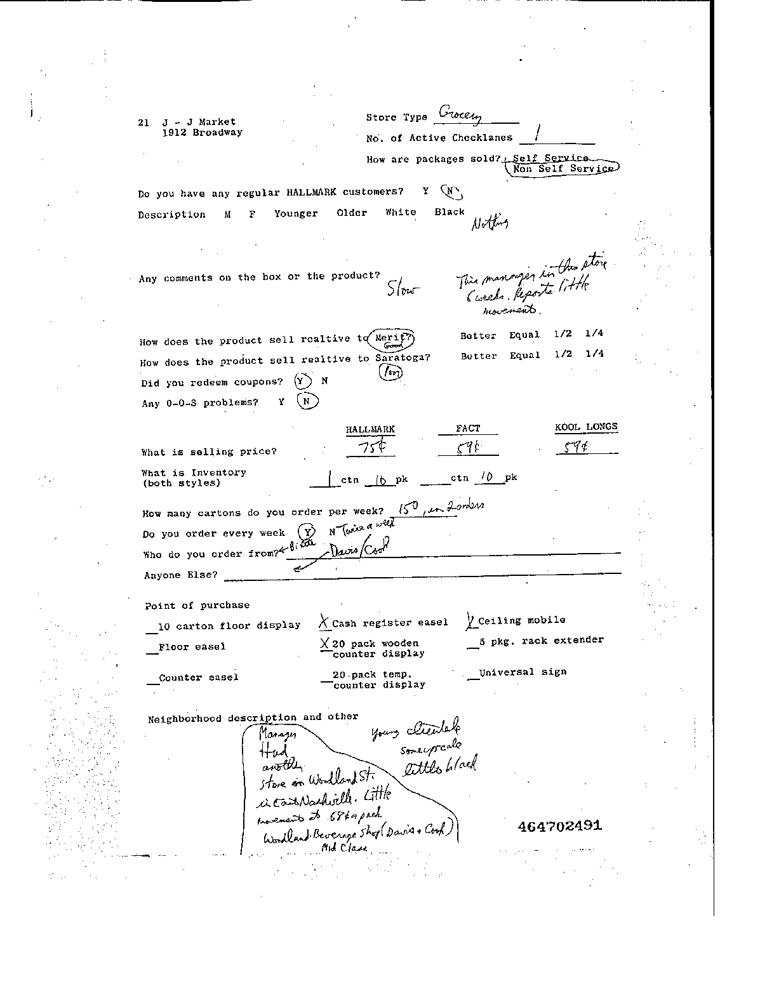 21 J - J Market
1912 Broadway
Store Type Grocery
No. of Active Checklanes 1
How are packages sold? Self Service
Non Self Service
Do you have any regular HALLMARK customers? Y N
Description M F Younger Older White Black
Nothing
Any comments on the box or the product? Slow
This manager in this store
6 weeks. Reports little
movement.
How does the product sell realtive to Merit? Better Equal 1/2 1/4
How does the product sell realtive to Saratoga? Better Equal 1/2 1/4
Did you redeem coupons? Y N
Any 0-0-S problems? Y N
HALLMARK FACT KOOL LONGS
What is selling price? 75¢ 59¢ 59¢
What is Inventory
(both styles) 1 ctn 16 pk ctn 10 pk
How many cartons do you order per week? 150, in 2 orders
Do you order every week Y N Twice a week
Who do you order from? Davis/Cook
Anyone Else?
Point of purchase
10 carton floor display X Cash register easel Ceiling mobile
Floor easel X 20 pack wooden
counter display 5 pkg. rack extender
Counter easel 20 pack temp.
counter display Universal sign
Neighborhood description and other
Manager
Had
another
store on Woodland St.
in East Nashville. Little
movement at 68¢ a pack
Woodland Beverage Shop (Davis + Cook)
Mid Class
Young clientele
some upscale
little black
464702491